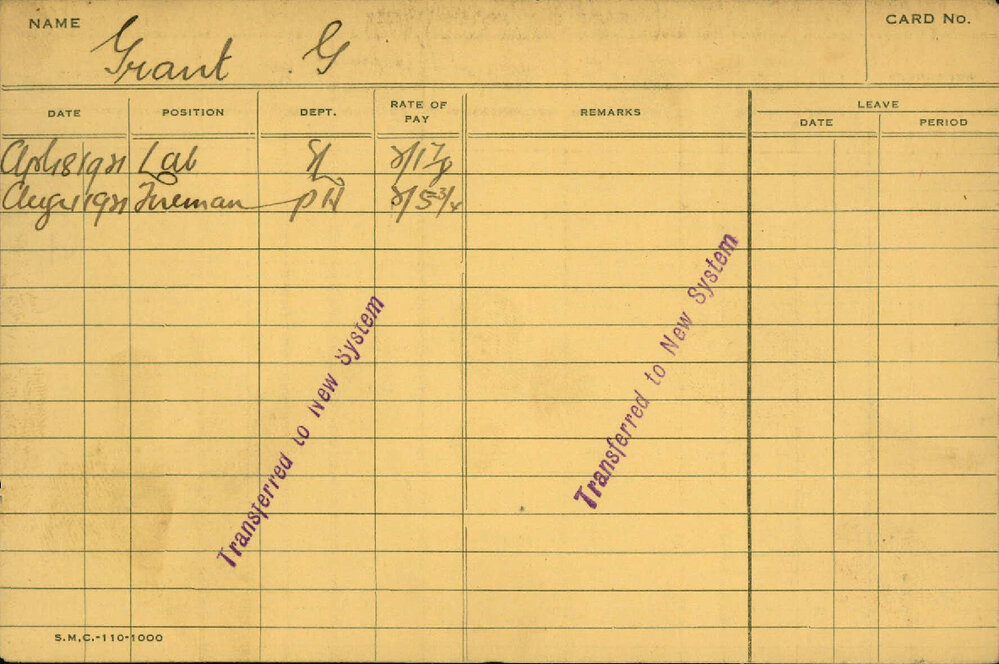 NAME Grant G CARD No.
DATE POSITION DEPT. RATE OF PAY REMARKS LEAVE
DATE PERIOD
Apl 18 1921 Lab
Aug 1 1921 Fireman PH 2/5 3/4
Transferred to New System
Transferred to New System
S.M.C.-110-1000